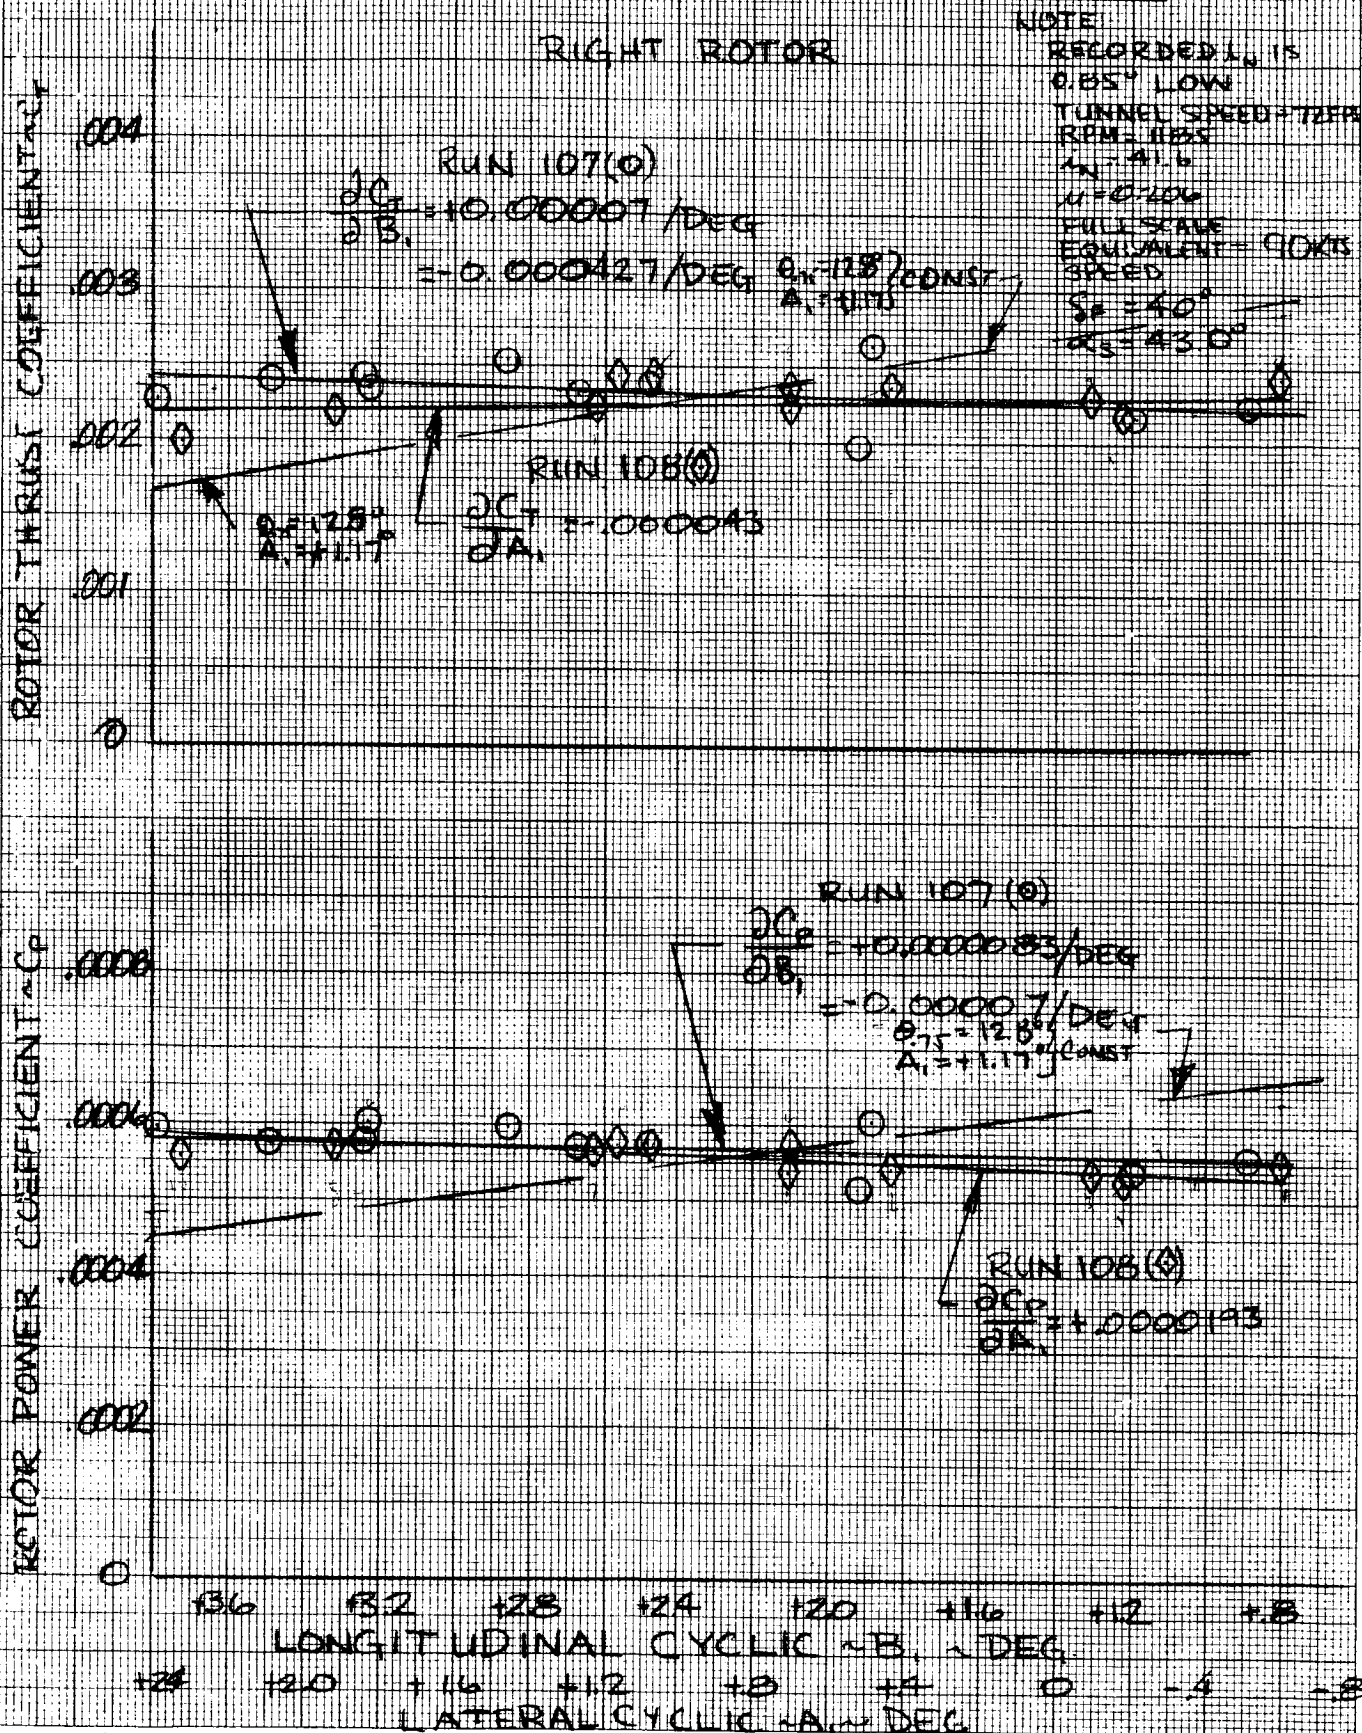 RIGHT ROTOR
NOTE
RECORDED iN IS
0.85° LOW
TUNNEL SPEED = 72FPS
RPM = 1185
iN = 41.6
μ = 0.206
FULL SCALE
EQUIVALENT = 90KTS
SPEED
= 40°
αs = 43.0°
ROTOR THRUST COEFFICIENT ~ CT
.004
.003
.002
.001
0
RUN 107(⊙)
∂CT
∂B1
= +0.00007 /DEG
= -0.000427/DEG
= 12.8° } CONST
A1 = +1.17
RUN 108(◇)
∂CT
∂A1
= -.000043
= 12.8°
A1 = +1.17°
ROTOR POWER COEFFICIENT ~ CP
.0008
.0006
.0004
.0002
0
RUN 107(⊙)
∂CP
∂B1
= +0.0000083/DEG
= -0.00007/DEG
θ.75 = 12.8° } CONST
A1 = +1.17°
RUN 108(◇)
∂CP
∂A1
= +.0000193
+3.6 +3.2 +2.8 +2.4 +2.0 +1.6 +1.2 +.8
LONGITUDINAL CYCLIC ~ B1 ~ DEG
+2.4 +2.0 +1.6 +1.2 +.8 +.4 0 -.4 -.8
LATERAL CYCLIC ~ A1 ~ DEG